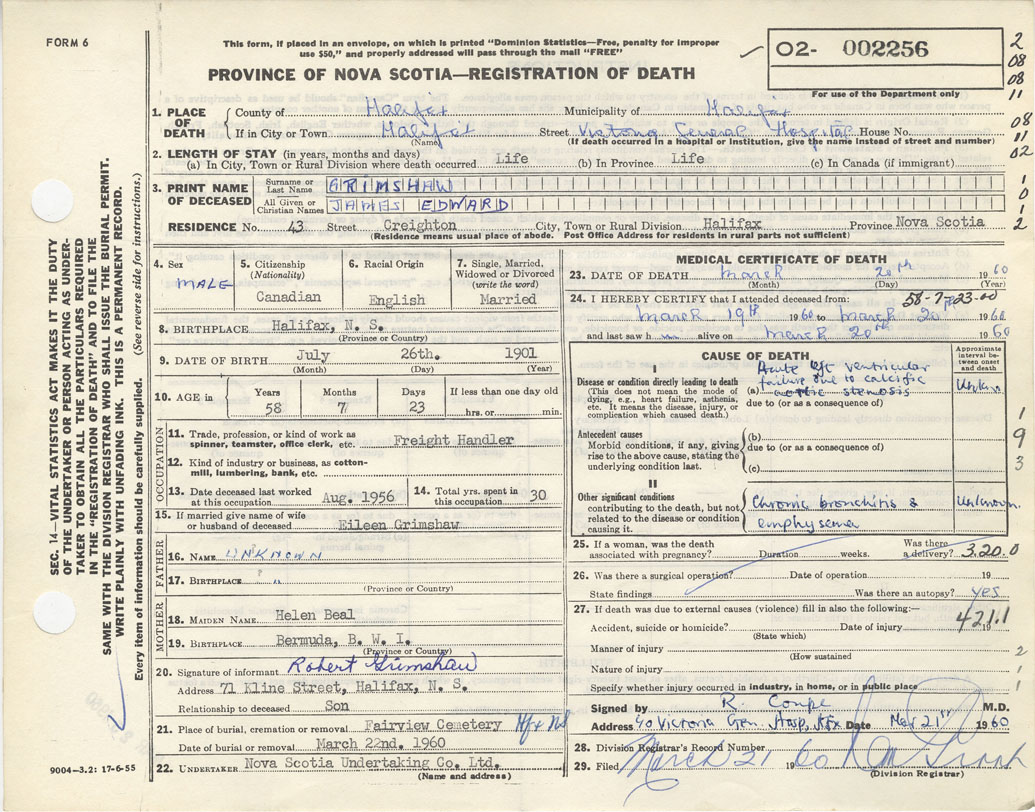 FORM 6
This form, if placed in an envelope, on which is printed "Dominion Statistics—Free, penalty for improper
use $50," and properly addressed will pass through the mail "FREE"
PROVINCE OF NOVA SCOTIA—REGISTRATION OF DEATH
02- 002256
For use of the Department only
2
08
08
11
08
11
02
1
0
1
2
1. PLACE OF DEATH
County of Halifax Municipality of Halifax
If in City or Town Halifax Street Victoria General Hospital House No.
(Name) (If death occurred in a Hospital or Institution, give the name instead of street and number)
2. LENGTH OF STAY (in years, months and days)
(a) In City, Town or Rural Division where death occurred Life (b) In Province Life (c) In Canada (if immigrant)
3. PRINT NAME OF DECEASED
Surname or Last Name GRIMSHAW
All Given or Christian Names JAMES EDWARD
RESIDENCE No. 43 Street Creighton City, Town or Rural Division Halifax Province Nova Scotia
(Residence means usual place of abode. Post Office Address for residents in rural parts not sufficient)
4. Sex
MALE
5. Citizenship
(Nationality)
Canadian
6. Racial Origin
English
7. Single, Married,
Widowed or Divorced
(write the word)
Married
8. BIRTHPLACE Halifax, N. S.
(Province or Country)
9. DATE OF BIRTH July 26th. 1901
(Month) (Day) (Year)
10. AGE in
Years Months Days If less than one day old
58 7 23 hrs. or min.
OCCUPATION
11. Trade, profession, or kind of work as
spinner, teamster, office clerk, etc. Freight Handler
12. Kind of industry or business, as cotton-
mill, lumbering, bank, etc.
13. Date deceased last worked
at this occupation Aug. 1956
14. Total yrs. spent in
this occupation 30
15. If married give name of wife
or husband of deceased Eileen Grimshaw
FATHER
16. NAME UNKNOWN
17. BIRTHPLACE "
(Province or Country)
MOTHER
18. MAIDEN NAME Helen Beal
19. BIRTHPLACE Bermuda, B. W. I.
(Province or Country)
20. Signature of informant Robert Grimshaw
Address 71 Kline Street, Halifax, N. S.
Relationship to deceased Son
21. Place of burial, cremation or removal Fairview Cemetery Hfx NS
Date of burial or removal March 22nd. 1960
22. UNDERTAKER Nova Scotia Undertaking Co. Ltd.
(Name and address)
MEDICAL CERTIFICATE OF DEATH
23. DATE OF DEATH March 20th 1960
(Month) (Day) (Year)
24. I HEREBY CERTIFY that I attended deceased from: 58-7-23-00
March 19th 1960 to March 20th 1960
and last saw him alive on March 20th 1960
CAUSE OF DEATH
Approximate interval between onset and death
I
Disease or condition directly leading to death
(This does not mean the mode of
dying, e.g., heart failure, asthenia,
etc. It means the disease, injury, or
complication which caused death.)
Acute left ventricular
failure due to calcific
(a) aortic stenosis
due to (or as a consequence of)
Unkn.
Antecedent causes
Morbid conditions, if any, giving
rise to the above cause, stating the
underlying condition last.
(b)
due to (or as a consequence of)
(c)
II
Other significant conditions
contributing to the death, but not
related to the disease or condition
causing it.
Chronic bronchitis &
emphysema
Unknown
1
9
3
25. If a woman, was the death
associated with pregnancy? Duration weeks. Was there
a delivery? 3.20.0
26. Was there a surgical operation? Date of operation 19
State findings Was there an autopsy? yes
27. If death was due to external causes (violence) fill in also the following:—
Accident, suicide or homicide? Date of injury 19
(State which)
421.1
Manner of injury
(How sustained
2
Nature of injury
1
Specify whether injury occurred in industry, in home, or in public place
1
Signed by R. Coupe M.D.
Address 40 Victoria Gen. Hosp, Hfx Date Mar 21st 1960
28. Division Registrar's Record Number
29. Filed March 21 1960
(Division Registrar)
SEC. 14—VITAL STATISTICS ACT MAKES IT THE DUTY
OF THE UNDERTAKER OR PERSON ACTING AS UNDER-
TAKER TO OBTAIN ALL THE PARTICULARS REQUIRED
IN THE "REGISTRATION OF DEATH" AND TO FILE THE
SAME WITH THE DIVISION REGISTRAR WHO SHALL ISSUE THE BURIAL PERMIT.
WRITE PLAINLY WITH UNFADING INK. THIS IS A PERMANENT RECORD.
Every item of information should be carefully supplied. (See reverse side for instructions.)
9004—3.2: 17-6-55